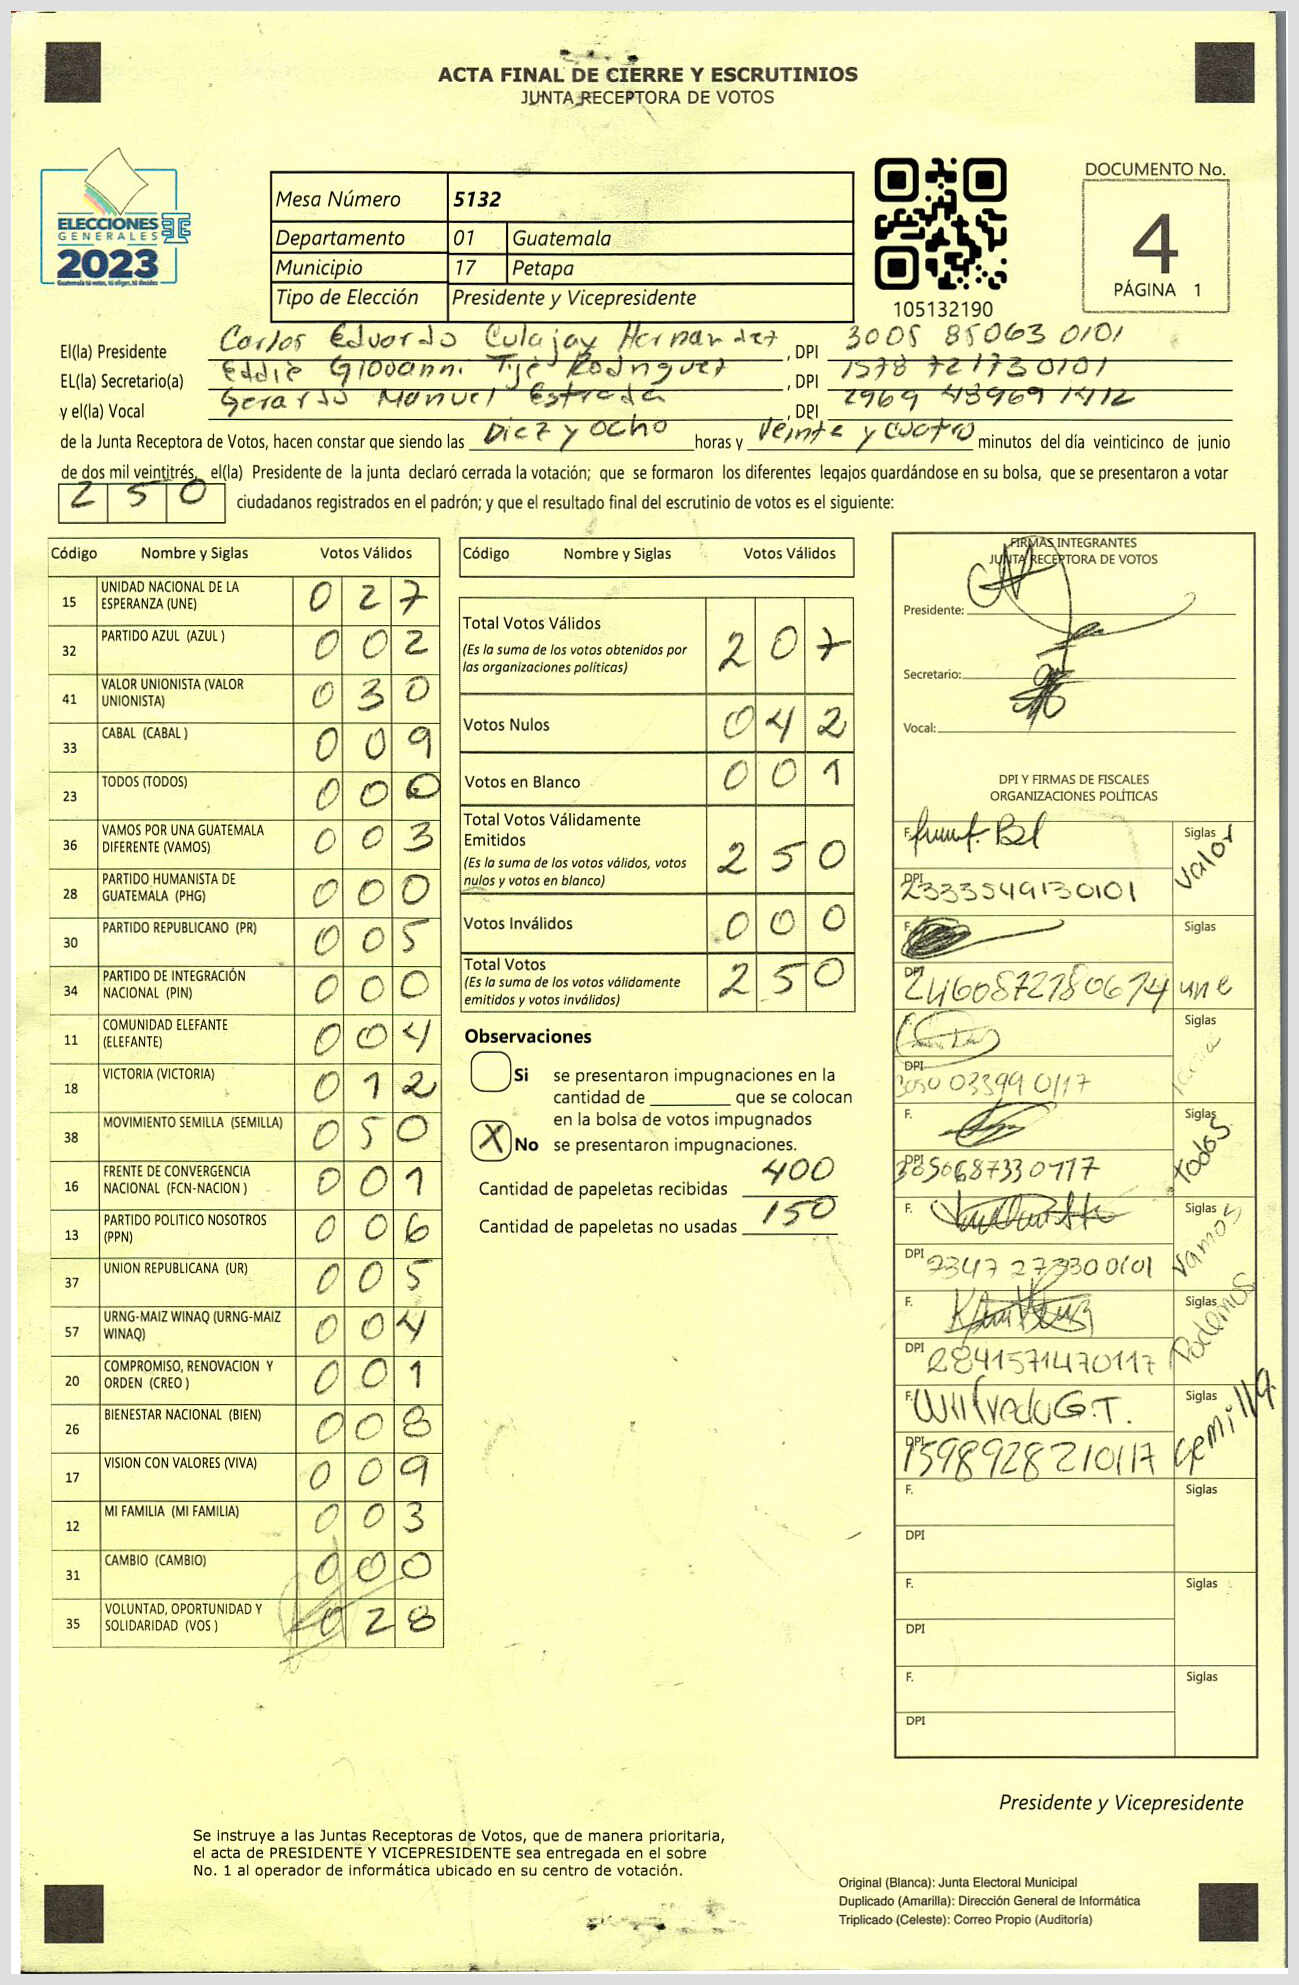 ACTA FINAL DE CIERRE Y ESCRUTINIOS
JUNTA RECEPTORA DE VOTOS
ELECCIONES
GENERALES
2023
Guatemala tú votas, tú eliges, tú decides
Mesa Número 5132
Departamento 01 Guatemala
Municipio 17 Petapa
Tipo de Elección Presidente y Vicepresidente
105132190
DOCUMENTO No.
4
PÁGINA 1
El(la) Presidente Carlos Eduardo Culajay Hernandez, DPI 3005 85063 0101
EL(la) Secretario(a) Eddie Giovanni Rodriguez, DPI 1578 72173 0101
y el(la) Vocal Gerardo Manuel Estrada, DPI 2969 48969 1412
de la Junta Receptora de Votos, hacen constar que siendo las Diez y Ocho horas y Veinte y cuatro minutos del día veinticinco de junio
de dos mil veintitrés, el(la) Presidente de la junta declaró cerrada la votación; que se formaron los diferentes legajos guardándose en su bolsa, que se presentaron a votar
250 ciudadanos registrados en el padrón; y que el resultado final del escrutinio de votos es el siguiente:
Código Nombre y Siglas Votos Válidos
15 UNIDAD NACIONAL DE LA ESPERANZA (UNE) 027
32 PARTIDO AZUL (AZUL ) 002
41 VALOR UNIONISTA (VALOR UNIONISTA) 030
33 CABAL (CABAL ) 009
23 TODOS (TODOS) 000
36 VAMOS POR UNA GUATEMALA DIFERENTE (VAMOS) 003
28 PARTIDO HUMANISTA DE GUATEMALA (PHG) 000
30 PARTIDO REPUBLICANO (PR) 005
34 PARTIDO DE INTEGRACIÓN NACIONAL (PIN) 000
11 COMUNIDAD ELEFANTE (ELEFANTE) 004
18 VICTORIA (VICTORIA) 012
38 MOVIMIENTO SEMILLA (SEMILLA) 050
16 FRENTE DE CONVERGENCIA NACIONAL (FCN-NACION ) 001
13 PARTIDO POLITICO NOSOTROS (PPN) 006
37 UNION REPUBLICANA (UR) 005
57 URNG-MAIZ WINAQ (URNG-MAIZ WINAQ) 004
20 COMPROMISO, RENOVACION Y ORDEN (CREO ) 001
26 BIENESTAR NACIONAL (BIEN) 008
17 VISION CON VALORES (VIVA) 009
12 MI FAMILIA (MI FAMILIA) 003
31 CAMBIO (CAMBIO) 000
35 VOLUNTAD, OPORTUNIDAD Y SOLIDARIDAD (VOS ) 028
Código Nombre y Siglas Votos Válidos
Total Votos Válidos 207
(Es la suma de los votos obtenidos por
las organizaciones políticas)
Votos Nulos 042
Votos en Blanco 001
Total Votos Válidamente
Emitidos 250
(Es la suma de los votos válidos, votos
nulos y votos en blanco)
Votos Inválidos 000
Total Votos 250
(Es la suma de los votos válidamente
emitidos y votos inválidos)
Observaciones
Si se presentaron impugnaciones en la
cantidad de ________ que se colocan
en la bolsa de votos impugnados
X No se presentaron impugnaciones.
Cantidad de papeletas recibidas 400
Cantidad de papeletas no usadas 150
FIRMAS INTEGRANTES
JUNTA RECEPTORA DE VOTOS
Presidente:
Secretario:
Vocal:
DPI Y FIRMAS DE FISCALES
ORGANIZACIONES POLÍTICAS
F. Siglas Valor
DPI 2333549130101
F. Siglas une
DPI 2460872780614
F. Siglas
DPI 3050 03399 0117
F. Siglas Todos
DPI 3850687330117
F. Siglas Vamos
DPI 2347 27330 0101
F. Siglas Podemos
DPI 2841571470117
F. Wilfredo G.T. Siglas Semilla
DPI 1598928210117
F. Siglas
DPI
F. Siglas
DPI
F. Siglas
DPI
Presidente y Vicepresidente
Se instruye a las Juntas Receptoras de Votos, que de manera prioritaria,
el acta de PRESIDENTE Y VICEPRESIDENTE sea entregada en el sobre
No. 1 al operador de informática ubicado en su centro de votación.
Original (Blanca): Junta Electoral Municipal
Duplicado (Amarilla): Dirección General de Informática
Triplicado (Celeste): Correo Propio (Auditoría)